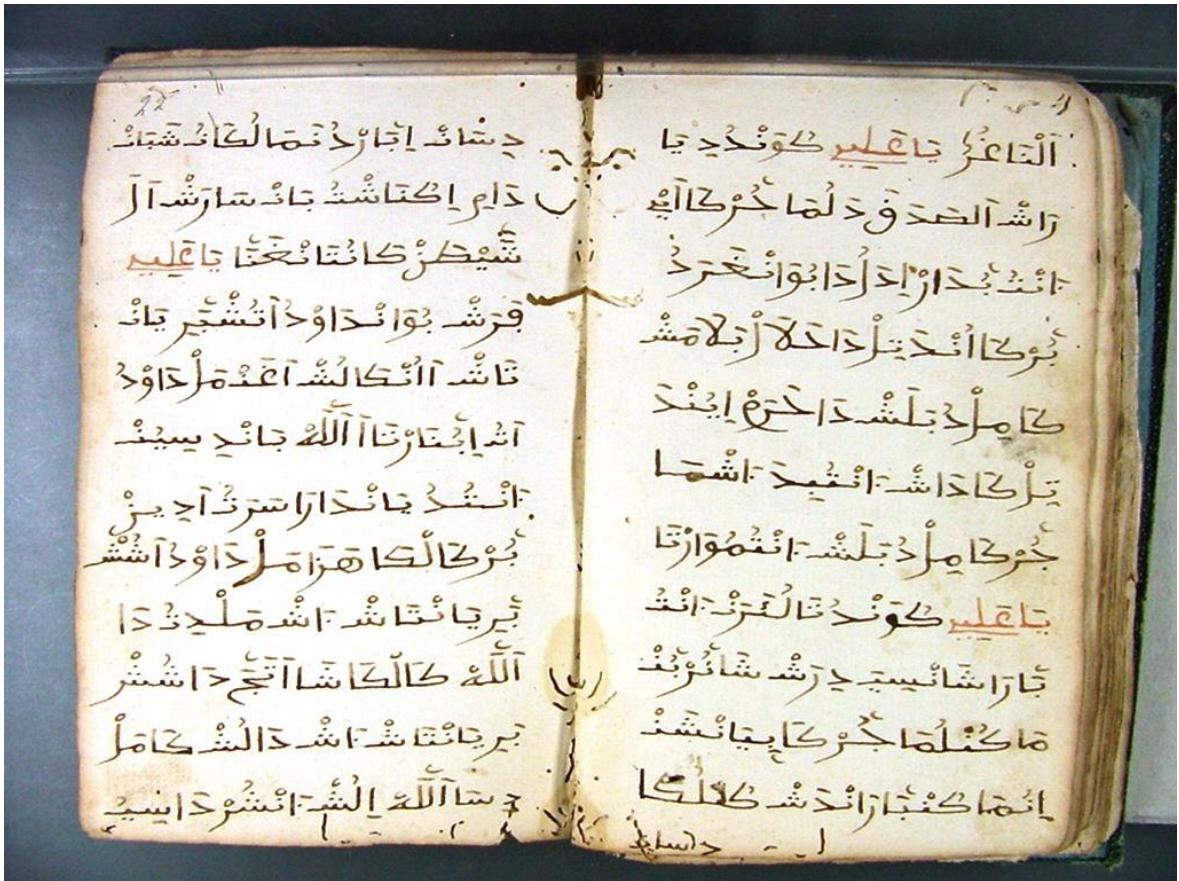 اَلْتَاغُرُ يَا عَلِيِ كُوَنْدُدِ يَا
رَاشْ اَلصَدَقَ دَ لُمَاجُرْ كَا اَيِ
اَنْتُ بُدَارْ اِدَلُ دَا بُوَانْغَرَدُ
بُرْكَا اُنْدَ تِرْ دَا حَلَالْ بَلَا مَشْ
كَامِلْ دُبَلَشْ دَا حَرَمْ اِيُنْدَ
تِرْ كَادَاشْ اَنْتُفِيدَ اَشْمَا
جُرْ كَامِلْ دُبَلَشْ اَنْتُمُوَارْتَا
يَا عَلِيِ كُوَنْدُ تَالُبَرَنْ اَنْتُ
بَارَا شَانْسِيِ دِرَشْ شَانُرْبُنْ
مَا كُنْلُمَا جُرْ كَا بِيَانْشَنْ
اِنُمَا كُنْبَارَانْدَشْ كُنْلُكَا
دِسَانْ اِبَارْدُنَمَا لُكَانُ شَبَانْ
دَامِ اِكُتَاشْتُ بَانْ سَارَشْ اَلَ
شَّيْطَنْ كَانُتَانْغَنَّا يَا عَلِيِ
فَرَشْ بُوَانْدَاوْدُ اَتُشْبِرِيَانْ
تَاشْ اَاُنْكَالُشْ اَغَنْ مَلْ دَاوْدُ
اَنُ اِبُنَارْتَا اَ اَللَّهْ بَانْدِسِيُنْ
اَنْتُدُ يَانْدَا رَاسَرَتُ اَدِيِنْ
بُرْكَالْكَا هَزَا مَلْ دَاوْدُ اَشُشْ
بَرِيَانْتَاشْ اَشْ مَلْدِتُ دَا
اَللَّهْ كَالْكَاشَا اَتَجِ دَاشُشْ
بَرِيَانْتَاشْ اَشْ دَالُشْ كَامَلْ
دِسَا اَللَّهْ اِلُشْ اَنْشُرْ دَاسِيِ